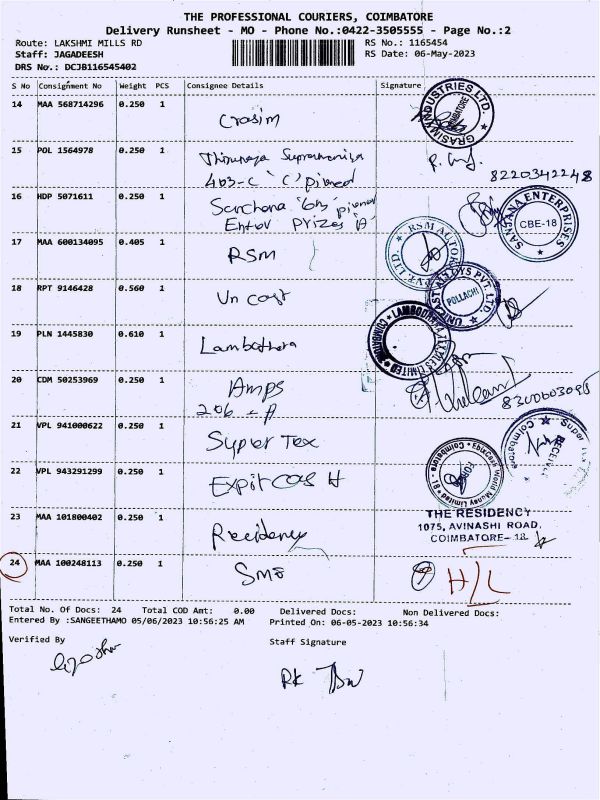 THE PROFESSIONAL COURIERS, COIMBATORE
Delivery Runsheet - MO - Phone No.:0422-3505555 - Page No.:2
Route: LAKSHMI MILLS RD
RS No.: 1165454
Staff: JAGADEESH
RS Date: 06-May-2023
DRS No.: DCJB116545402
S No Consignment No Weight PCS Consignee Details Signature
14 MAA 568714296 0.250 1
Crasim
GRASIM INDUSTRIES LTD.
COIMBATORE
15 POL 1564978 0.250 1
403-C 'C'
8220342248
16 HDP 5071611 0.250 1
Enter Prizes 'A'
SANJANA ENTERPRISES
CBE-18
17 MAA 600134095 0.405 1
RSM
RSM AUTOKAST PVT. LTD.
18 RPT 9146428 0.560 1
Un cast
UNICAST ALLOYS PVT. LTD.
POLLACHI
19 PLN 1445830 0.610 1
Lambothera
LIMITED
20 CDM 50253969 0.250 1
Amps
206 - A
21 VPL 941000622 0.250 1
Super Tex
Super
Coimbatore
RECEIVED
22 VPL 943291299 0.250 1
Expit cas H
EbixCash World Money Limited
Coimbatore - 18
23 MAA 101800402 0.250 1
Recidency
THE RESIDENCY
1075, AVINASHI ROAD,
COIMBATORE- 18
24 MAA 100248113 0.250 1
SME
H/L
Total No. Of Docs: 24 Total COD Amt: 0.00 Delivered Docs: Non Delivered Docs:
Entered By :SANGEETHAMO 05/06/2023 10:56:25 AM Printed On: 06-05-2023 10:56:34
Verified By Staff Signature
RK